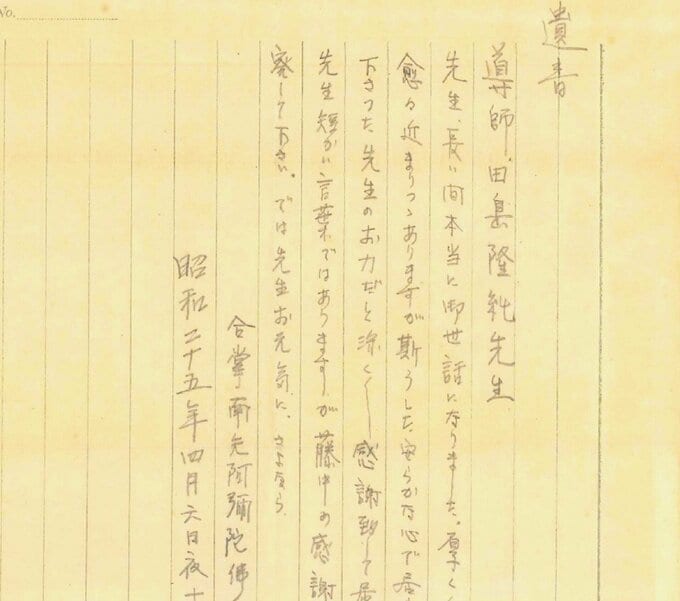 遺書
導師.田島隆純先生
先生、長い間本当に御世話になりました。厚く
愈々近まりつゝありますが斯うした安らかな心で居
下さつた先生のお力だと深く〱感謝致して居
先生短かい言葉ではありますが藤中の感謝
察して下さい。では先生お元気に、さよなら.
合掌南无阿彌陀佛
昭和二十五年四月六日夜十
No.